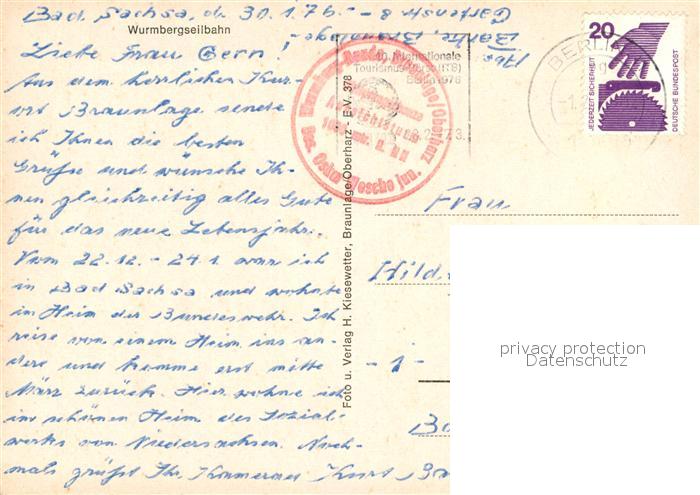 Bad Sachsa, d. 30.1.76.
Wurmbergseilbahn
Liebe Frau Gern!
Aus dem herrlichen Kur-
ort Braunlage sende
ich Ihnen die besten
Grüße und wünsche Ih-
nen gleichzeitig alles Gute
für das neue Lebensjahr.
Vom 22.12. - 24.1. war ich
in Bad Sachsa und wohnte
im Heim der Bundeswehr. Ich
reise von einem Heim ins an-
dere und komme erst mitte
März zurück. Hier wohne ich
im schönen Heim des Sozial-
werks von Niedersachsen. Noch-
mals grüßt Ihr Kamerad Kurt
Abs.
Braunlage
Gartenstr. 8
Internationale
Tourismus-Börse (ITB)
Berlin 1976
BERLIN
20
JEDERZEIT SICHERHEIT
DEUTSCHE BUNDESPOST
Braunlage/Oberharz
Bes. Oskar Mescho jun.
Foto u. Verlag H. Kiesewetter, Braunlage/Oberharz - E.V. 378
Frau
Hild
- 1 -
privacy protection
Datenschutz